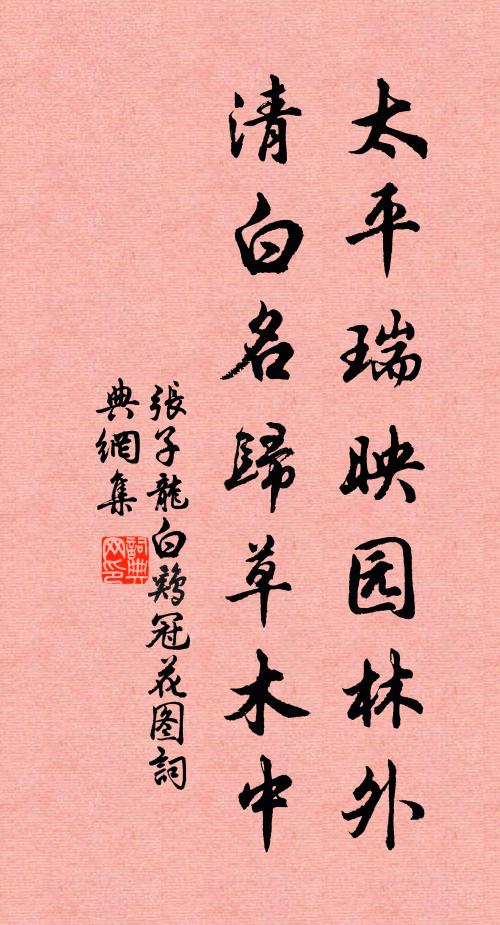 太平瑞映园林外
清白名歸草木中
張子龍白鷄冠花图詞
典網集
詞典网印